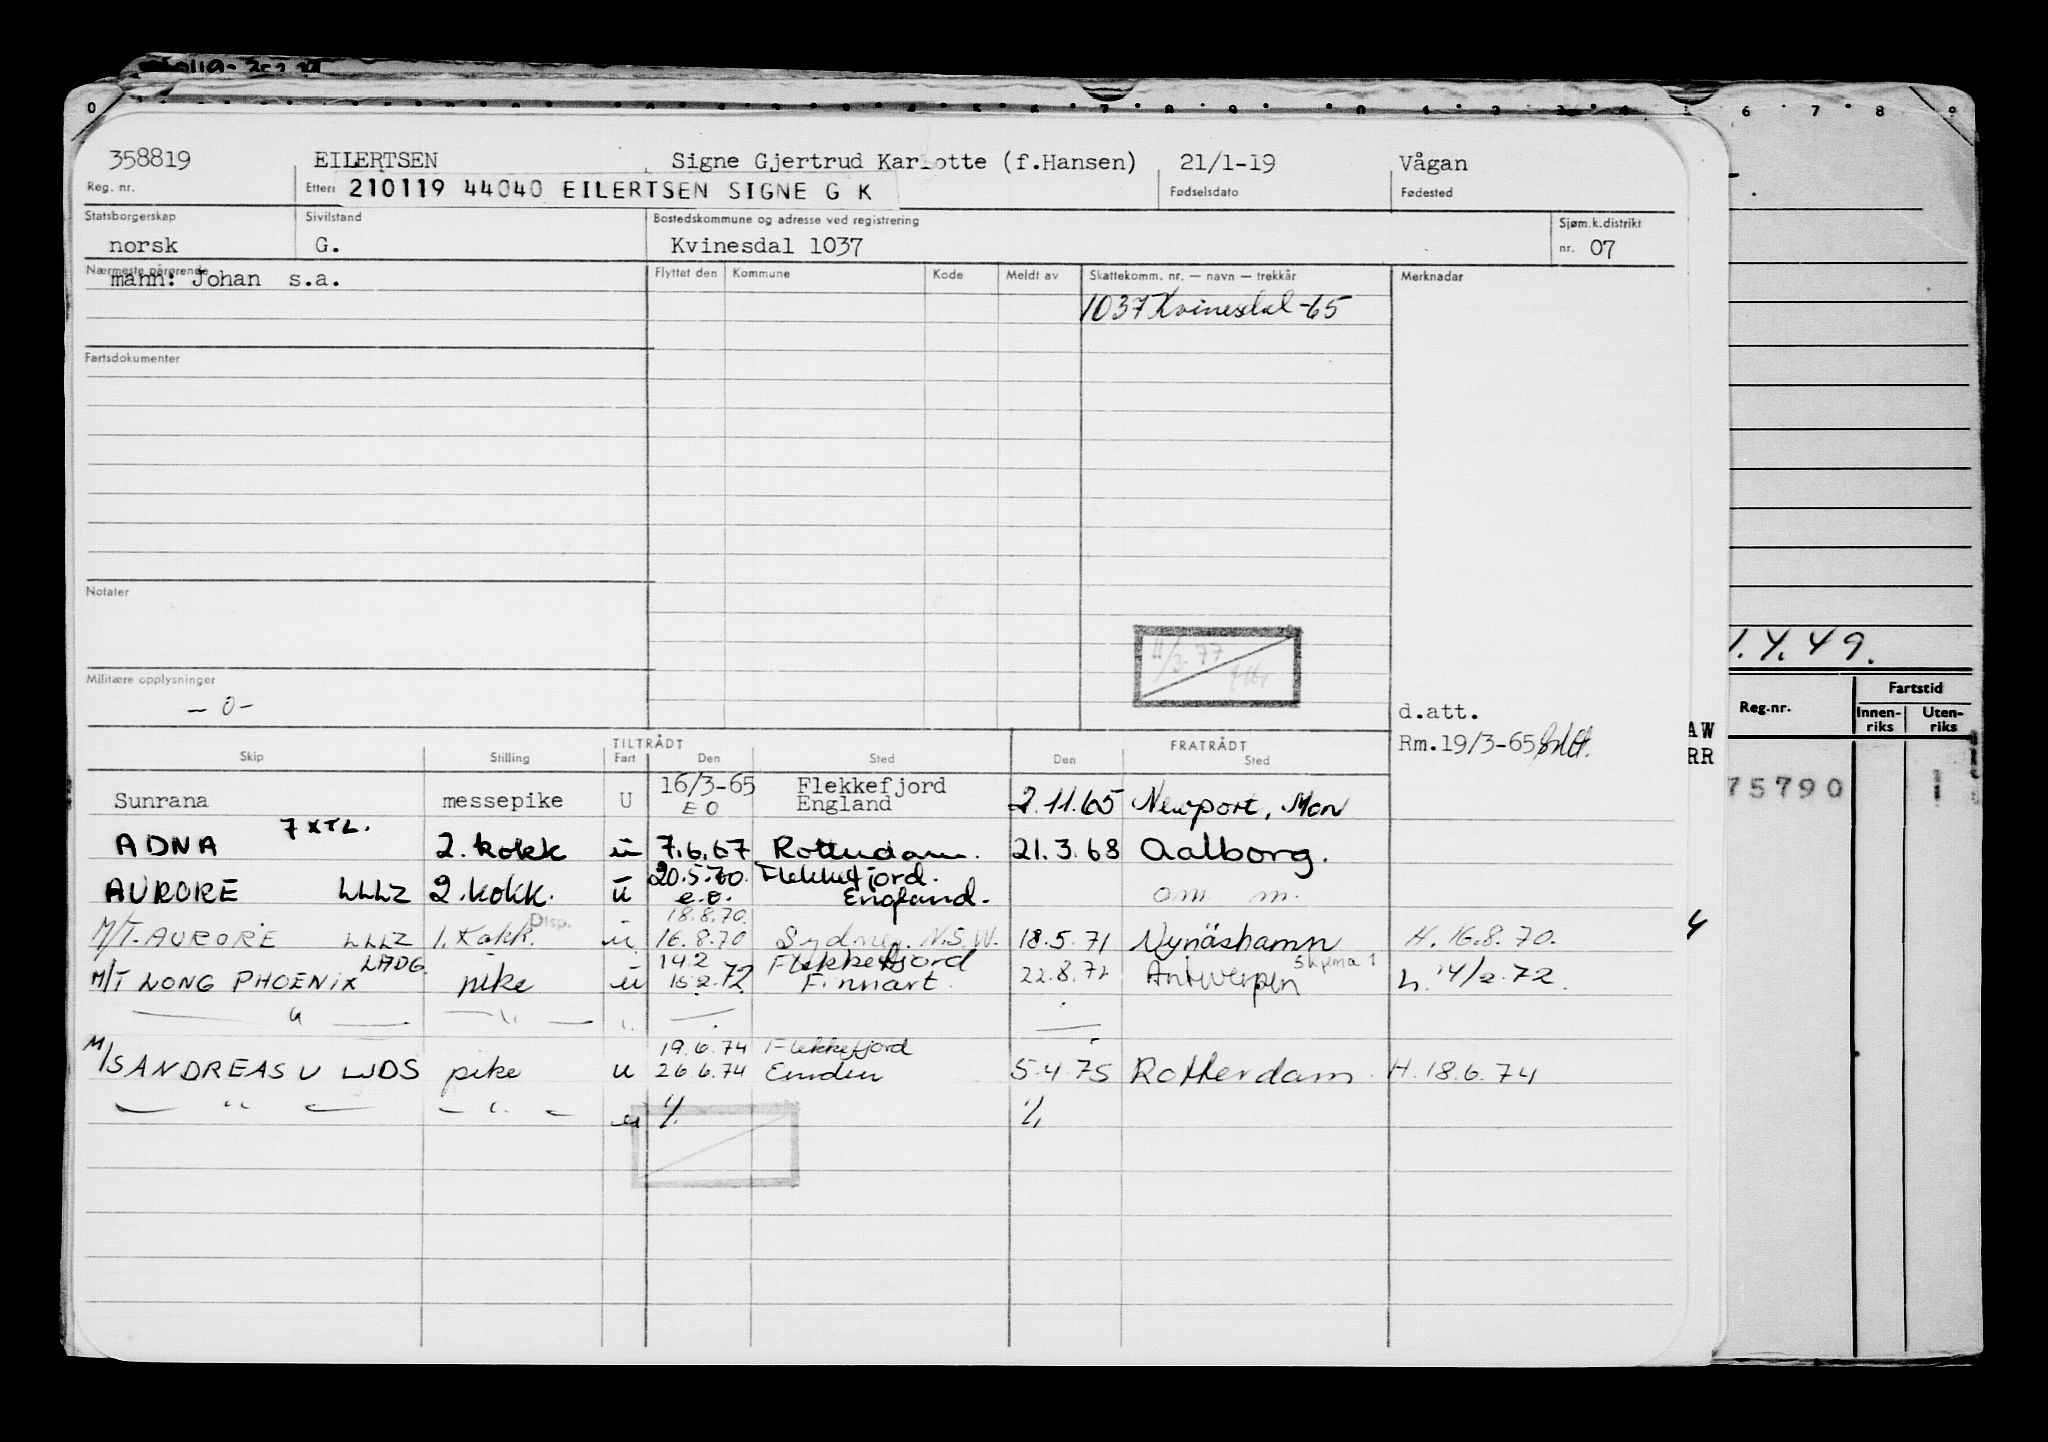 0 6 7 8 9
358819 EILERTSEN Signe Gjertrud Karlotte (f.Hansen) 21/1-19 Vågan
Reg. nr. Ettern 210119 44040 EILERTSEN SIGNE G K Fødselsdato Fødested
Statsborgerskap Sivilstand Bostedskommune og adresse ved registrering Sjøm.k.distrikt
norsk G. Kvinesdal 1037 nr. 07
Nærmeste pårørende Flyttet den Kommune Kode Meldt av Skattekomm. nr. — navn — trekkår Merknadar
mann: Johan s.a.
1037 Kvinesdal -65
Fartsdokumenter
Notater
11/3-77
1.4.49.
Militære opplysninger
- 0 -
d.att.
Rm.19/3-65
Reg.nr. Fartstid
Innenriks Utenriks
AW
RR
TILTRÅDT FRATRÅDT
Skip Stilling Fart Den Sted Den Sted
16/3-65 Flekkefjord
Sunrana messepike U E O England 2.11.65 Newport, Mon
75790 1
ADNA 7XTL. 2. kokk u 7.6.67 Rotterdam. 21.3.68 Aalborg.
20.5.70. Flekkefjord.
AURORE LLLZ 2. kokk. u e.o. England. om m.
18.8.70. Disp.
M/T. AURORE LLLZ 1. kokk. u 16.8.70 Sydney. N.S.W. 18.5.71 Nynäshamn H. 16.8.70.
4
LADG 14.2 Flekkefjord Skjema 1
M/T LONG PHOENIX pike u 15.2.72 Finnart. 22.8.72 Antwerpen h. 14/2.72.
— " — — " — "
19.6.74 Flekkefjord
M/S ANDREAS U LJDS pike u 26.6.74 Emden 5.4.75 Rotterdam. H. 18.6.74
— " — — " — u ·/. ·/.